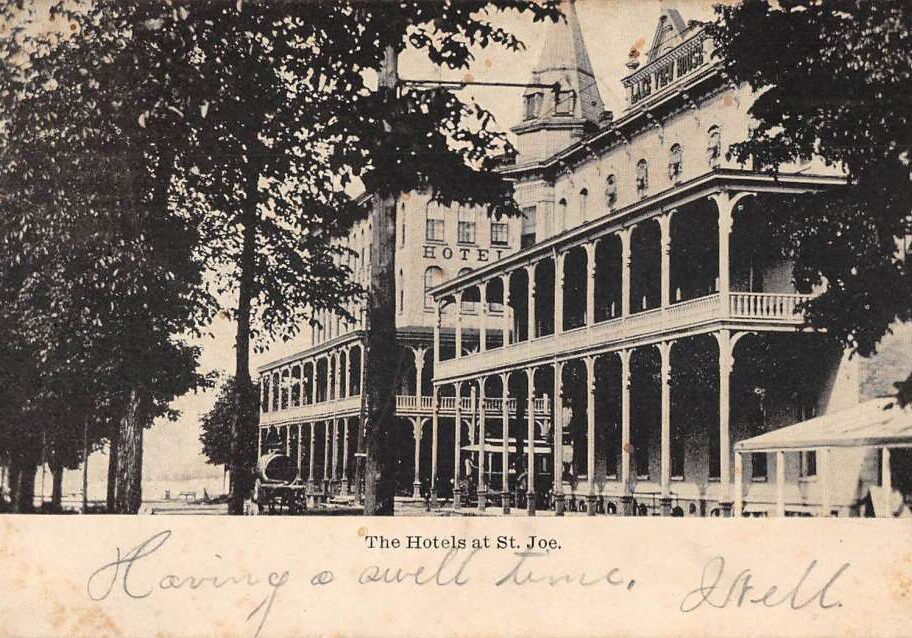 LAKE VIEW HOUSE
HOTEL
The Hotels at St. Joe.
Having a swell time.